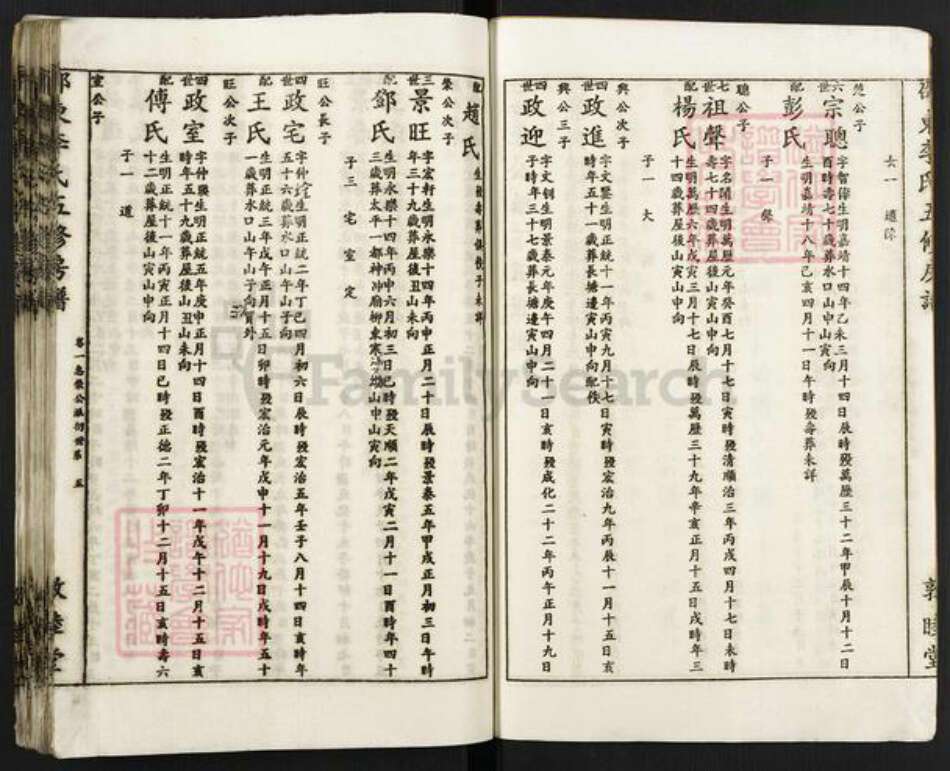 女一
楚公子
六世宗聰
字智偉生明嘉靖十四年乙未三月十四日辰時歿萬曆三十二年甲辰十月十二日
酉時壽七十歲葬水口山申山寅向
彭氏
生明嘉靖十八年己亥四月十一日午時歿壽葬未詳
子一 聲
聰公子
七世祖聲
字名聞生明萬曆元年癸酉七月十七日寅時歿清順治三年丙戌四月十七日未時
壽七十四歲葬屋後山寅山申向
配楊氏
生明萬曆六年戊寅三月十七日辰時歿萬曆三十九年辛亥正月十五日戌時年三
十四歲葬屋後山寅山申向
子一 大
興公次子
四世政進
字文鑒生明正統十一年丙寅九月十七日寅時歿宏治九年丙辰十一月十五日亥
時年五十一歲葬長塘邊寅山申向配佚
興公三子
四世政迎
字文鉬生明景泰元年庚午四月二十一日亥時歿成化二十二年丙午正月十九日
子時年三十七歲葬長塘邊寅山申向
敦睦堂
配趙氏
生歿壽葬俱佚子未詳
榮公次子
三世景旺
字宏軒生明永樂十四年丙申正月二十日辰時歿景泰五年甲戌正月初三日午時
年三十九歲葬屋後山丑山未向
配鄧氏
生明永樂十四年丙申六月初三日巳時歿天順二年戊寅二月十一日酉時年四十
三歲葬太平一都神冲廟柳東寒沙坳山申山寅向
子三 宅 室 定
旺公長子
四世政宅
字仲堂生明正統二年丁巳四月初六日辰時歿宏治五年壬子八月十四日亥時年
五十六歲葬水口山午山子向
配王氏
生明正統三年戊午正月十五日卯時歿宏治元年戊申十一月十九日戌時年五十
一歲葬水口山午山子向實外
旺公次子
四世政室
字仲樂生明正統五年庚申正月十四日酉時歿宏治十一年戊午十二月十五日亥
時年五十九歲葬屋後山丑山未向
配傅氏
生明正統十一年丙寅正月十四日巳時歿正德二年丁卯十二月十五日亥時壽六
十二歲葬屋後山寅山申向
子一 道
室公子
邵東李氏五修房譜
卷一 五
敦睦堂
FamilySearch